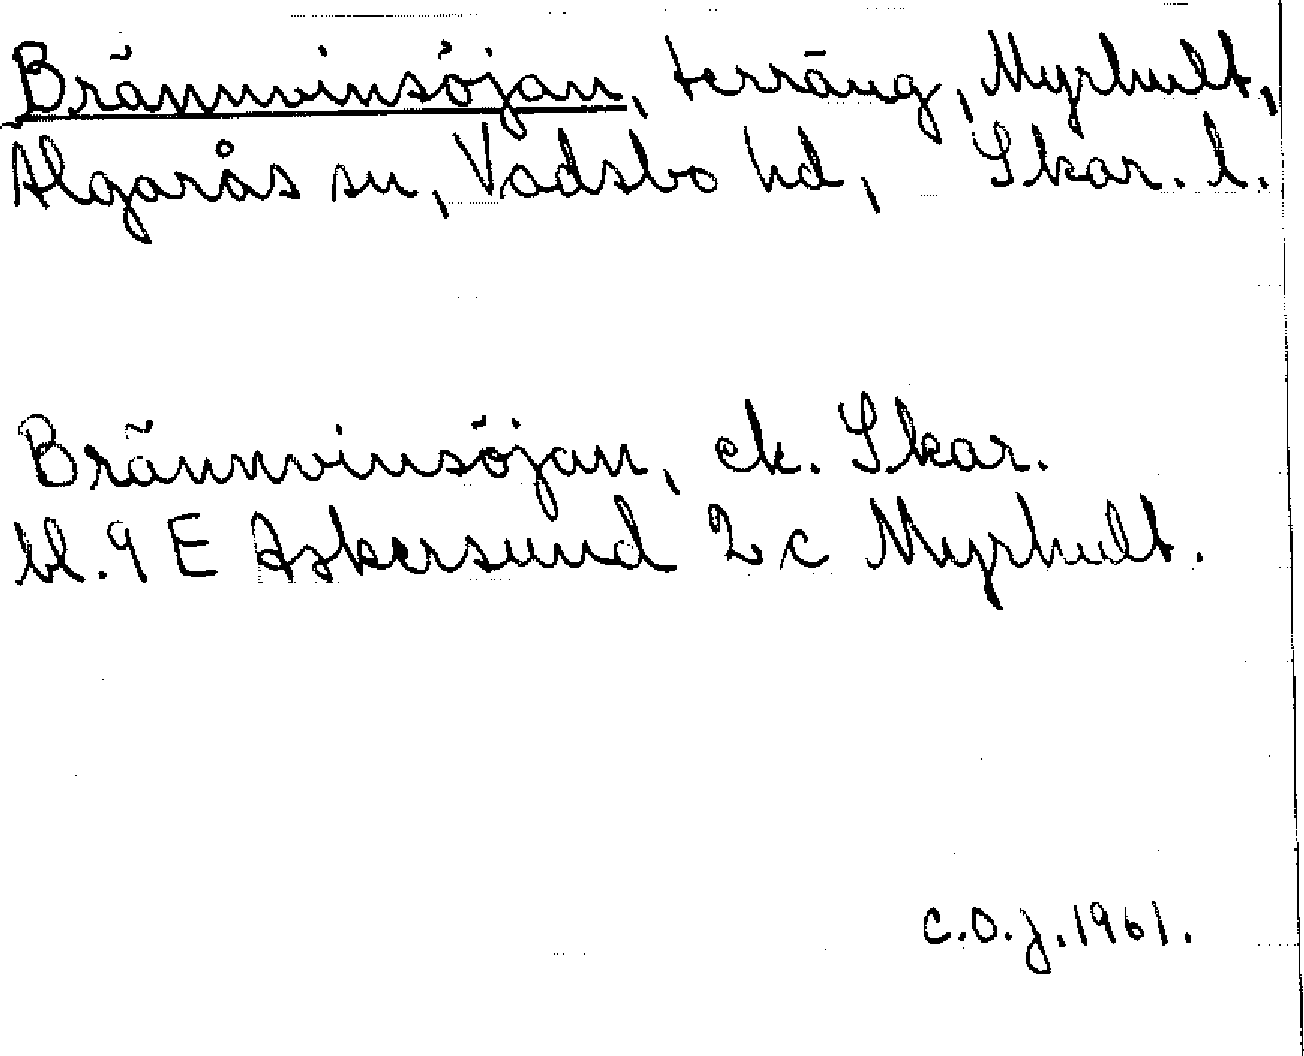 Brännvinsöjan, terräng, Myrhult,
Algarås sn, Vadsbo hd, Skar. l.
Brännvinsöjan, ek. Skar.
bl. 9 E Askersund 2 c Myrhult.
C.O.J. 1961.